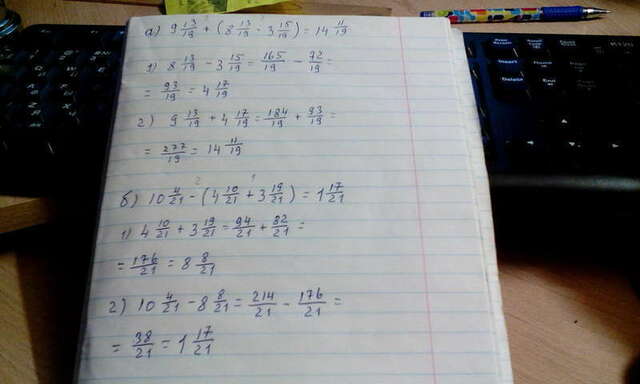 а) 9 13/19 + (8 13/19 - 3 15/19) = 14 11/19
1) 8 13/19 - 3 15/19 = 165/19 - 72/19 =
= 93/19 = 4 17/19
2) 9 13/19 + 4 17/19 = 184/19 + 93/19 =
= 277/19 = 14 11/19
2 1
б) 10 4/21 - (4 10/21 + 3 19/21) = 1 17/21
1) 4 10/21 + 3 19/21 = 94/21 + 82/21 =
= 176/21 = 8 8/21
2) 10 4/21 - 8 8/21 = 214/21 - 176/21 =
= 38/21 = 1 17/21
Insert
Delete
End